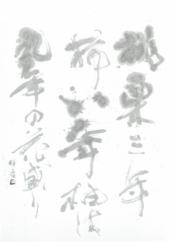 桃栗三年
柿八年柚は
九年の花盛り